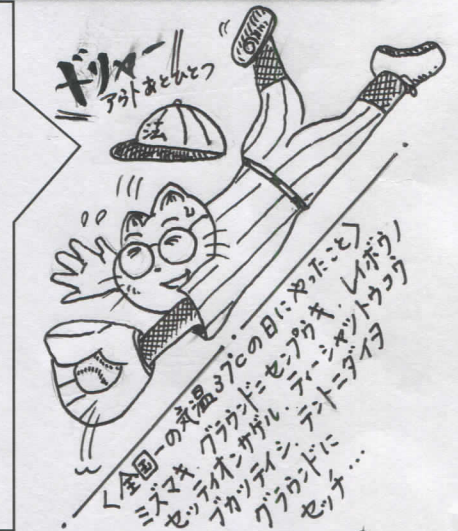 ギリャー!!
アウトあとひとつ
法
〈全国一の気温37℃の日にやったこと〉
ミズマキ、グラウンドニセンプウキ、レイボウノ
セッティオンサゲル、ティーシャツトウコウ
ブカツテイシ、テントニダイヲ
グラウンドに
セッチ…